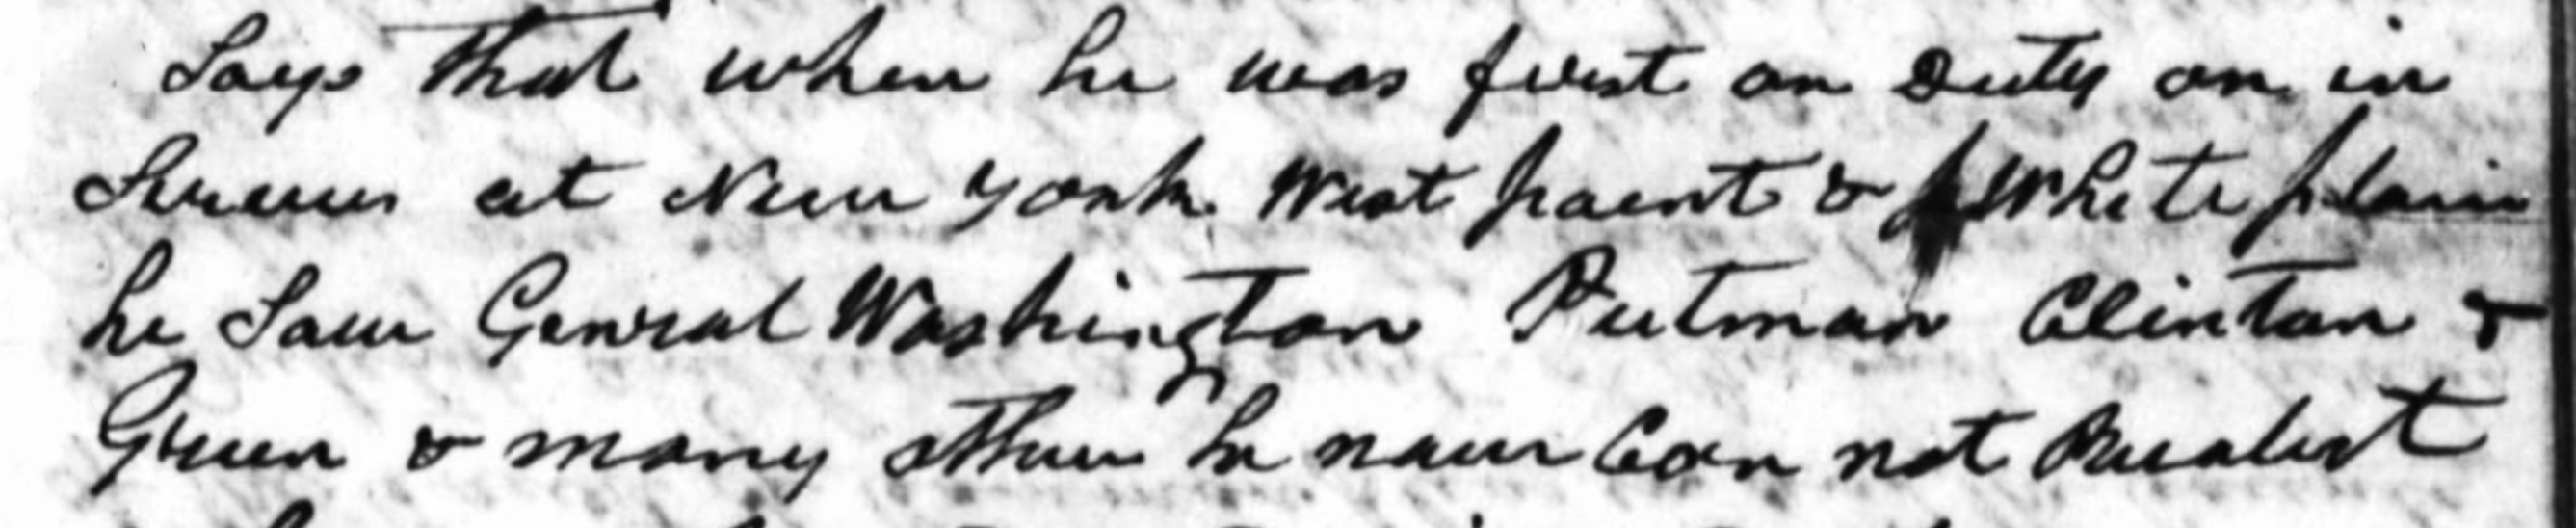 Says that when he was first on Duty on in
Servis at New York West point & White plain
he Saw Genral Washington Putman Clinton &
Green & many other he now Can not Recalect